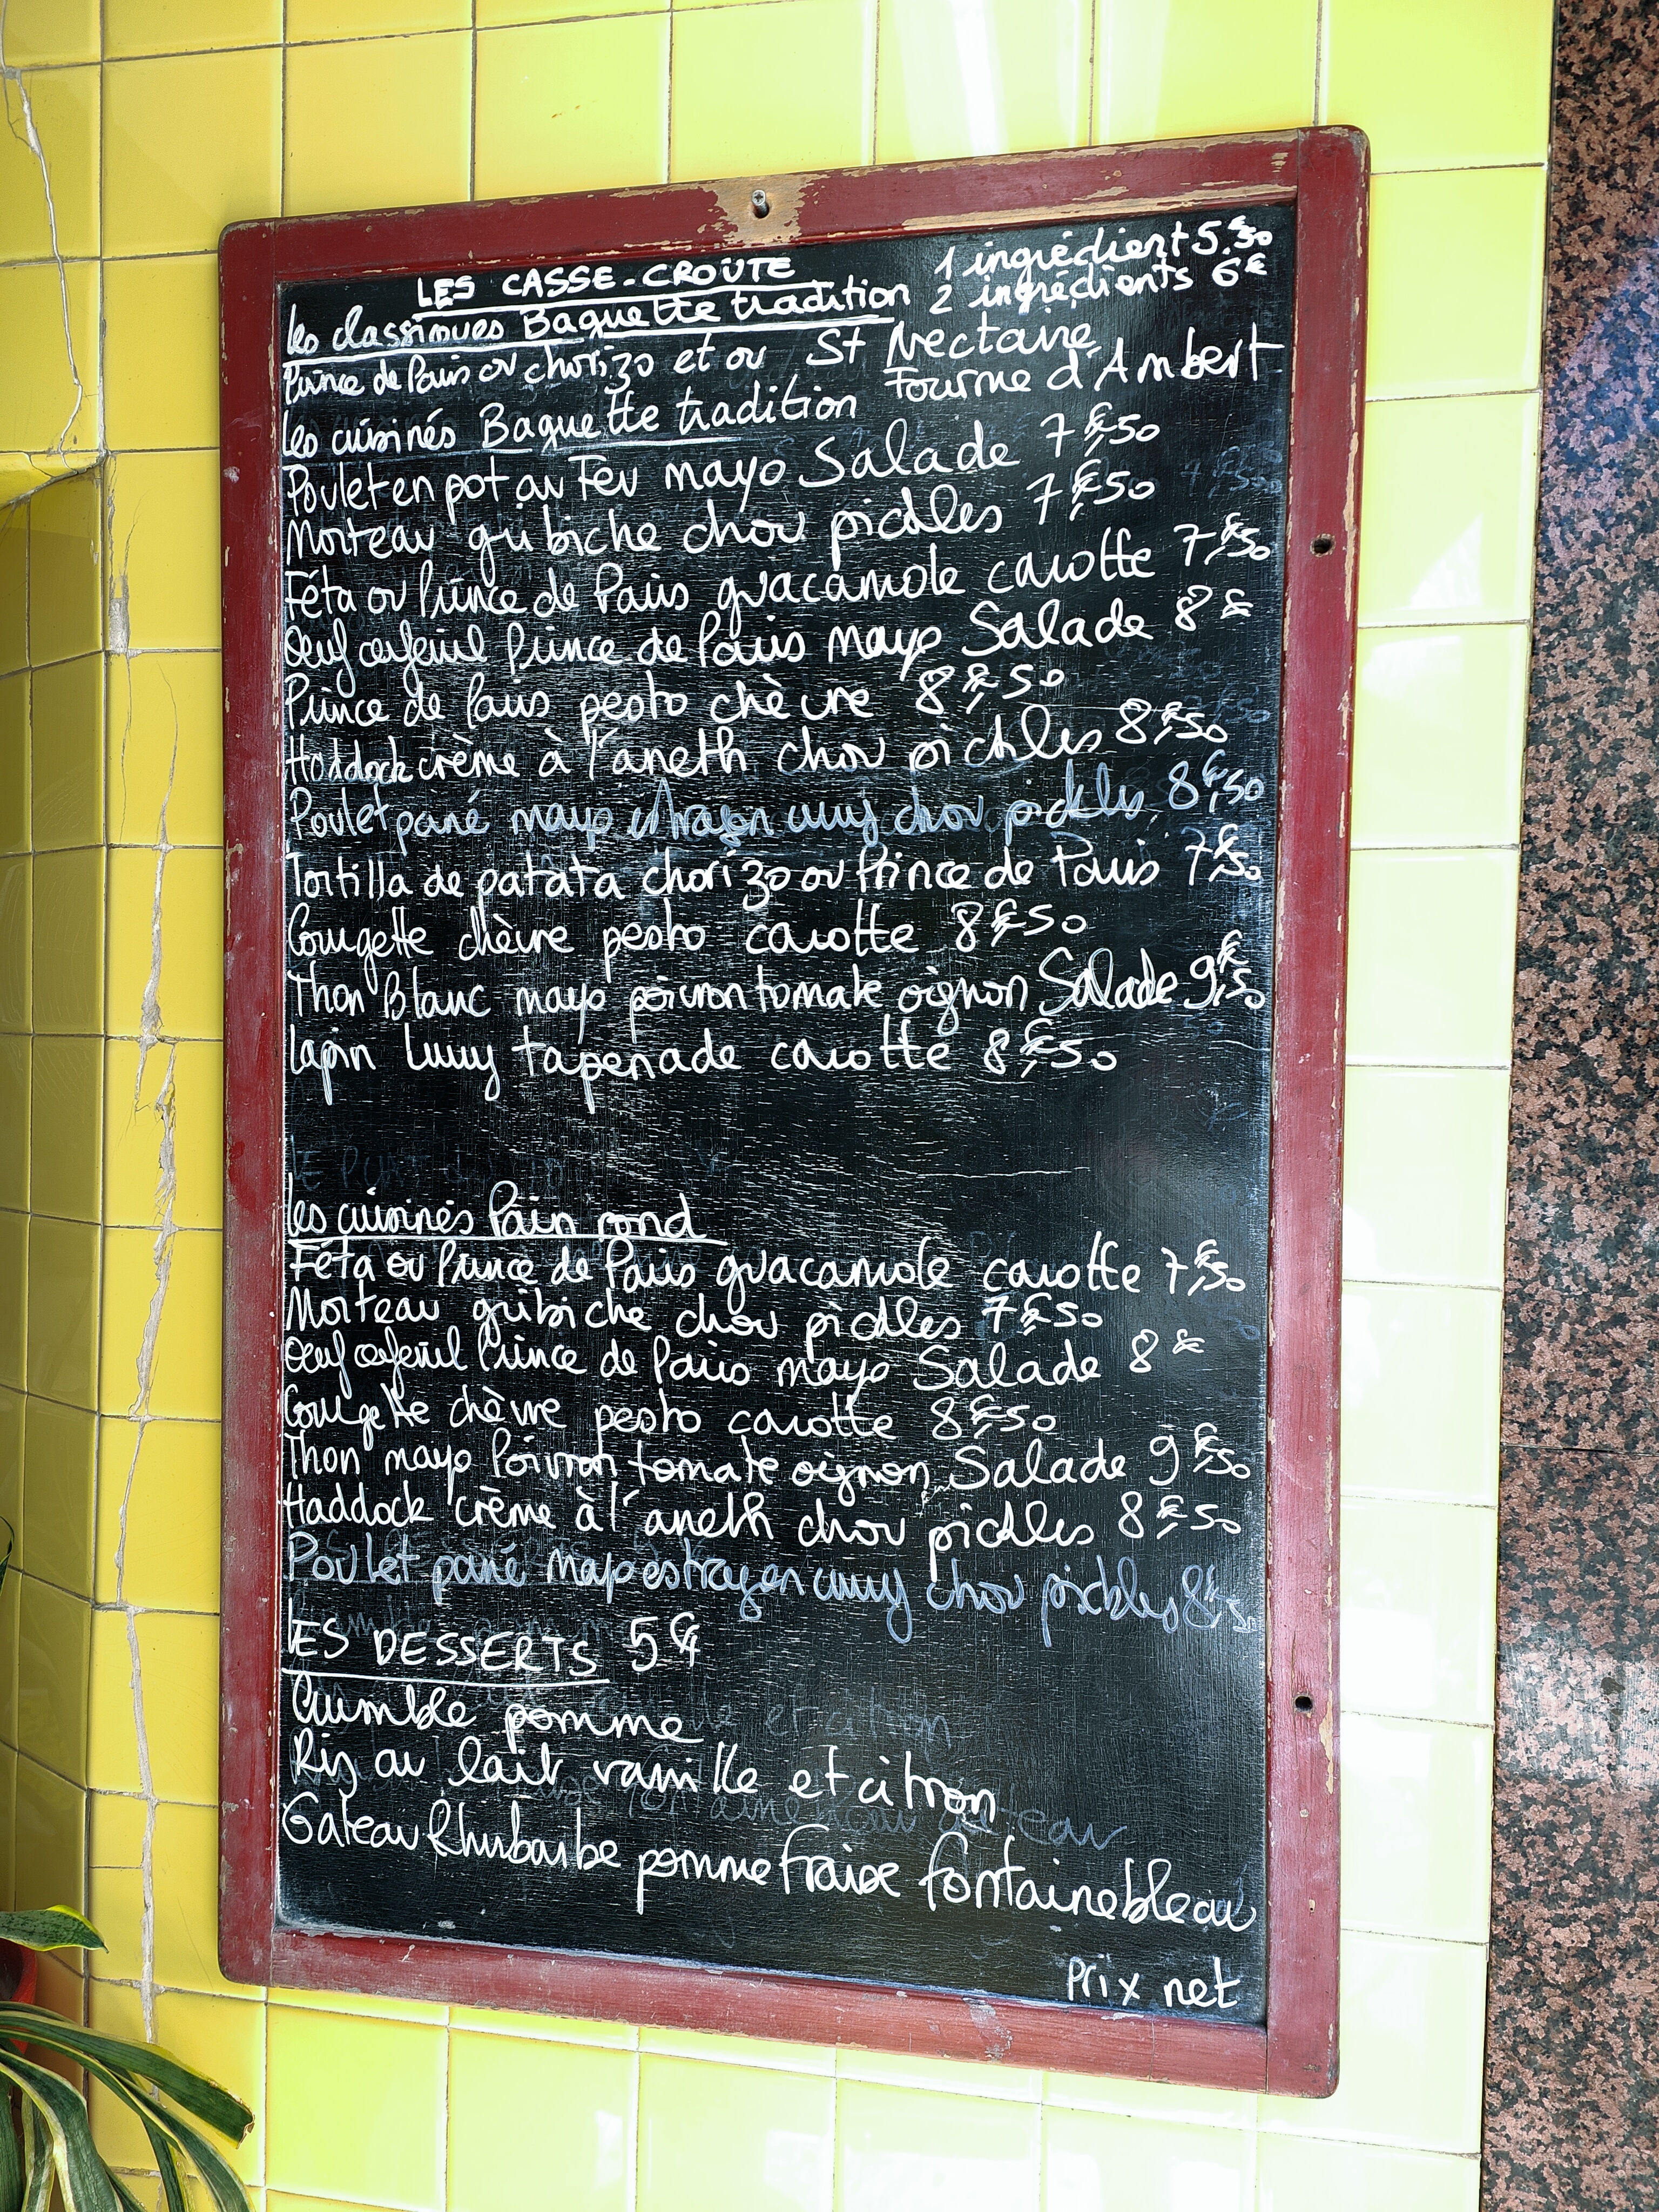 LES CASSE-CROÛTE
1 ingrédient 5,€50
Les classiques Baguette tradition 2 ingrédients 6€
Prince de Paris ou chorizo et ou St Nectaire
Fourme d'Ambert
Les cuisinés Baguette tradition
Poulet en pot au Feu mayo Salade 7€,50
Morteau gribiche chou pickles 7€,50
Féta ou Prince de Paris guacamole carotte 7€,50
Oeuf cerfeuil Prince de Paris mayo Salade 8€
Prince de Paris pesto chèvre 8€,50
Haddock crème à l'aneth chou pickles 8€,50
Poulet pané mayo estragon curry chou pickles 8€,50
Tortilla de patata chorizo ou Prince de Paris 7€,50
Courgette chèvre pesto carotte 8€,50
Thon Blanc mayo poivron tomate oignon Salade 9€,50
Lapin curry tapenade carotte 8€,50
Les cuisinés Pain rond
Féta ou Prince de Paris guacamole carotte 7€,50
Morteau gribiche chou pickles 7€,50
Oeuf cerfeuil Prince de Paris mayo Salade 8€
Courgette chèvre pesto carotte 8€,50
Thon mayo Poivron tomate oignon Salade 9€,50
Haddock crème à l'aneth chou pickles 8€,50
Poulet pané mayo estragon curry chou pickles 8€,50
LES DESSERTS 5€
Crumble pomme
Riz au lait vanille et citron
Gateau Rhubarbe pomme Fraise fontainebleau
Prix net